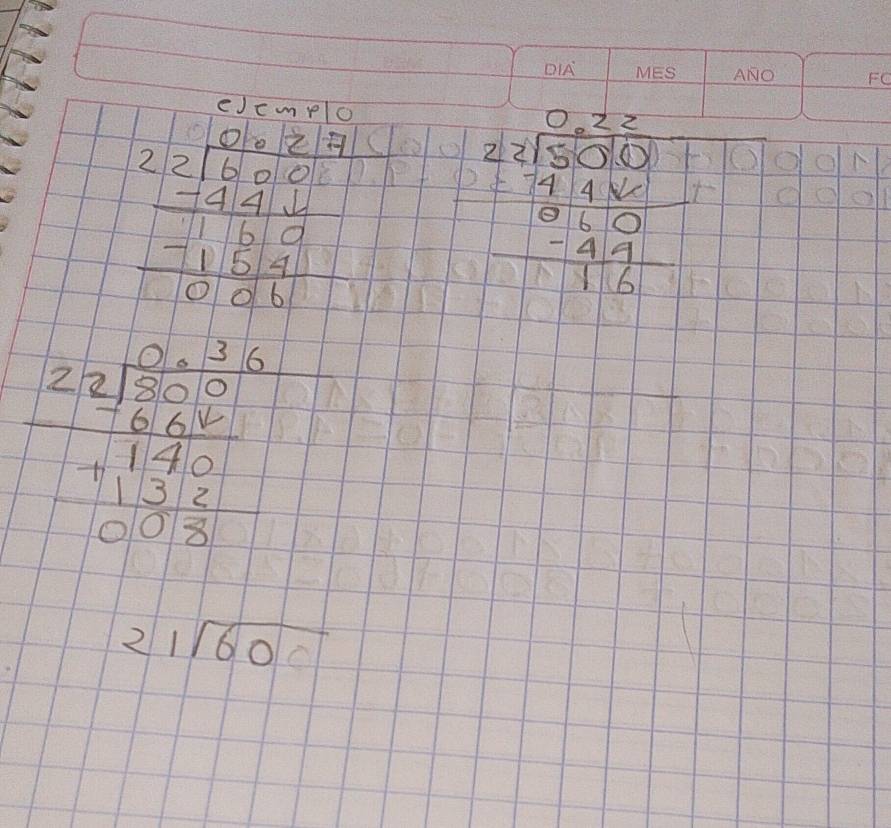 DIA MES AÑO FC
ejemplo
0.27
22 600
-44↓
160
-154
006
0.22
22 500
-44↓
060
-44
16
0.36
22 800
-66↓
140
+132
008
21 600